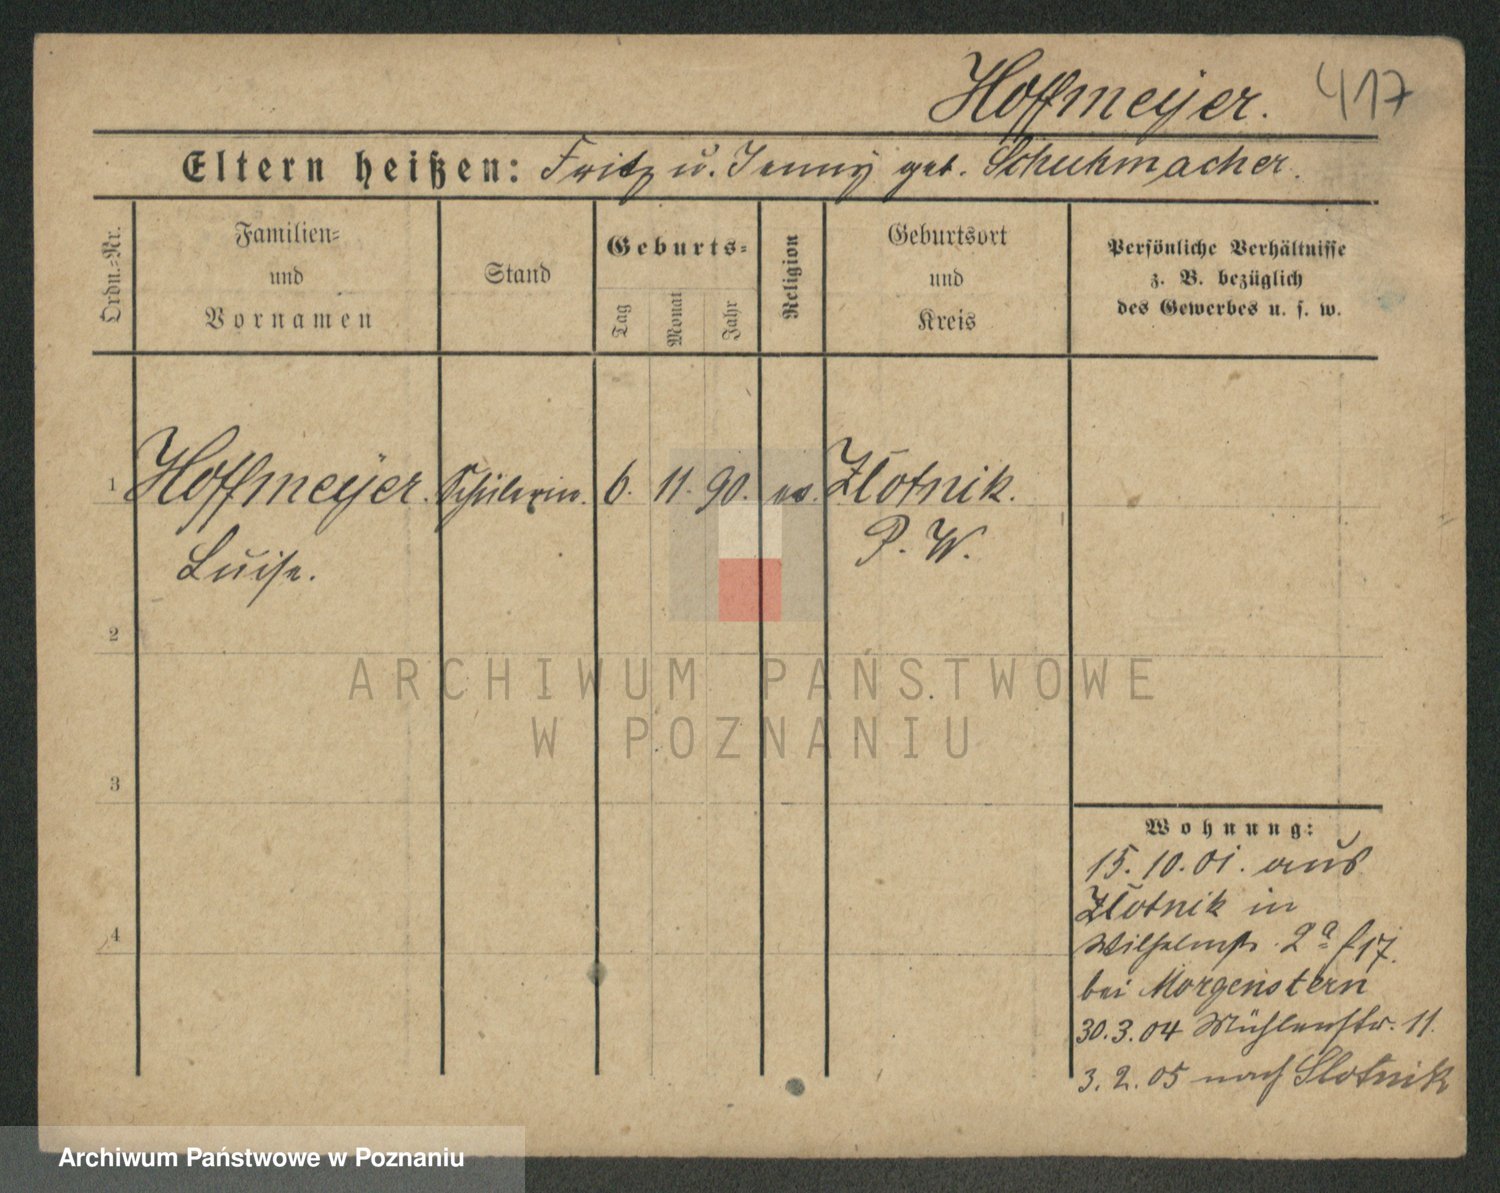 Hoffmeyer. 417
Eltern heißen: Fritz u. Jenny geb. Schuhmacher.
Ordn.-Nr.
Familien-
und
Vornamen
Stand
Geburts-
Tag
Monat
Jahr
Religion
Geburtsort
und
Kreis
Persönliche Verhältnisse
z. B. bezüglich
des Gewerbes u. s. w.
1 Hoffmeyer. Schülerin. 6. 11. 90. ev. Zlotnik.
Luise. P. W.
2
3
4
Wohnung:
15. 10. 01. aus
Zlotnik in
Wilhelmstr. 2a 17.
bei Morgenstern
30. 3. 04 Mühlenstr. 11.
3. 2. 05 nach Slotnik
ARCHIWUM PAŃSTWOWE
W POZNANIU
Archiwum Państwowe w Poznaniu